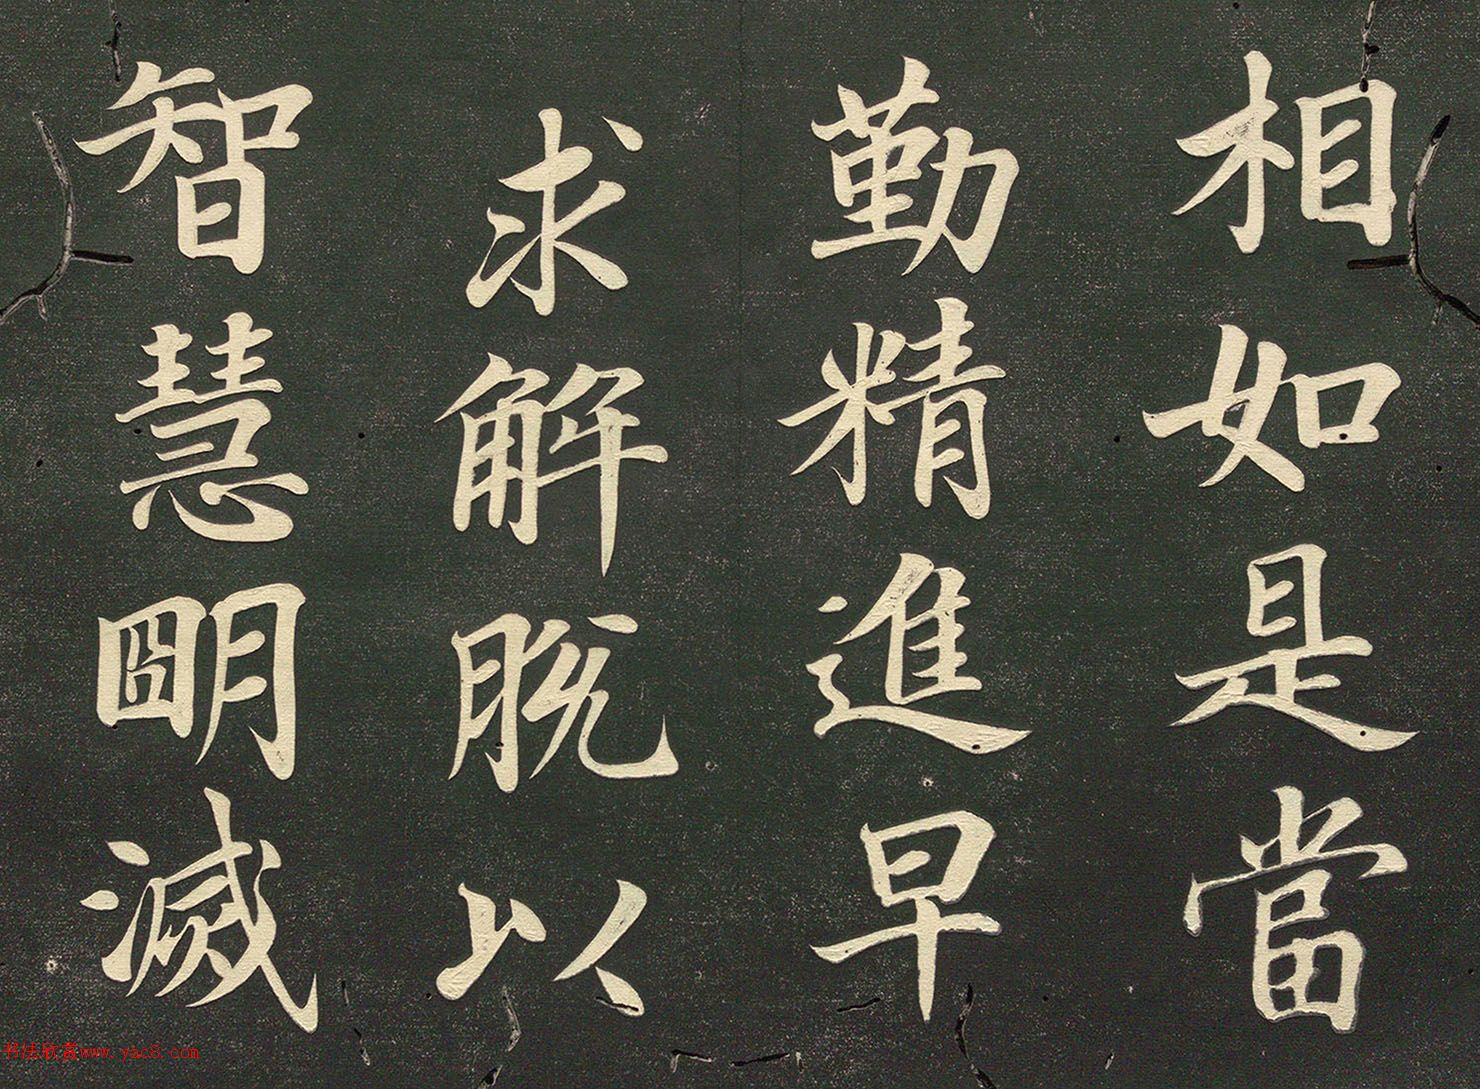 相如是當
勤精進早
求解脫以
智慧明滅
书法欣赏www.yac8.com